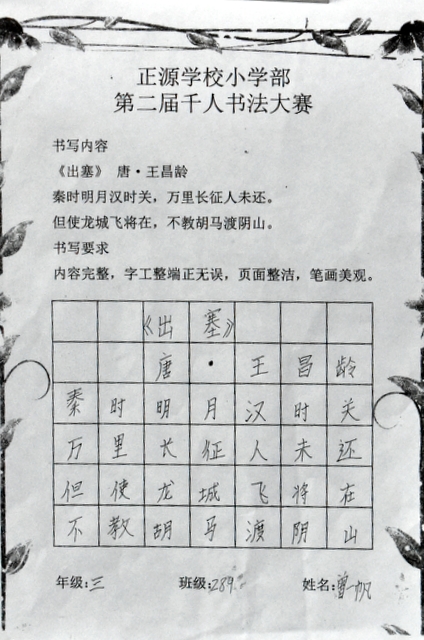 正源学校小学部
第二届千人书法大赛
书写内容
《出塞》 唐·王昌龄
秦时明月汉时关，万里长征人未还。
但使龙城飞将在，不教胡马渡阴山。
书写要求
内容完整，字工整端正无误，页面整洁，笔画美观。
《出塞》
唐·王昌龄
秦时明月汉时关
万里长征人未还
但使龙城飞将在
不教胡马渡阴山
年级:三 班级:289 姓名:曾一帆